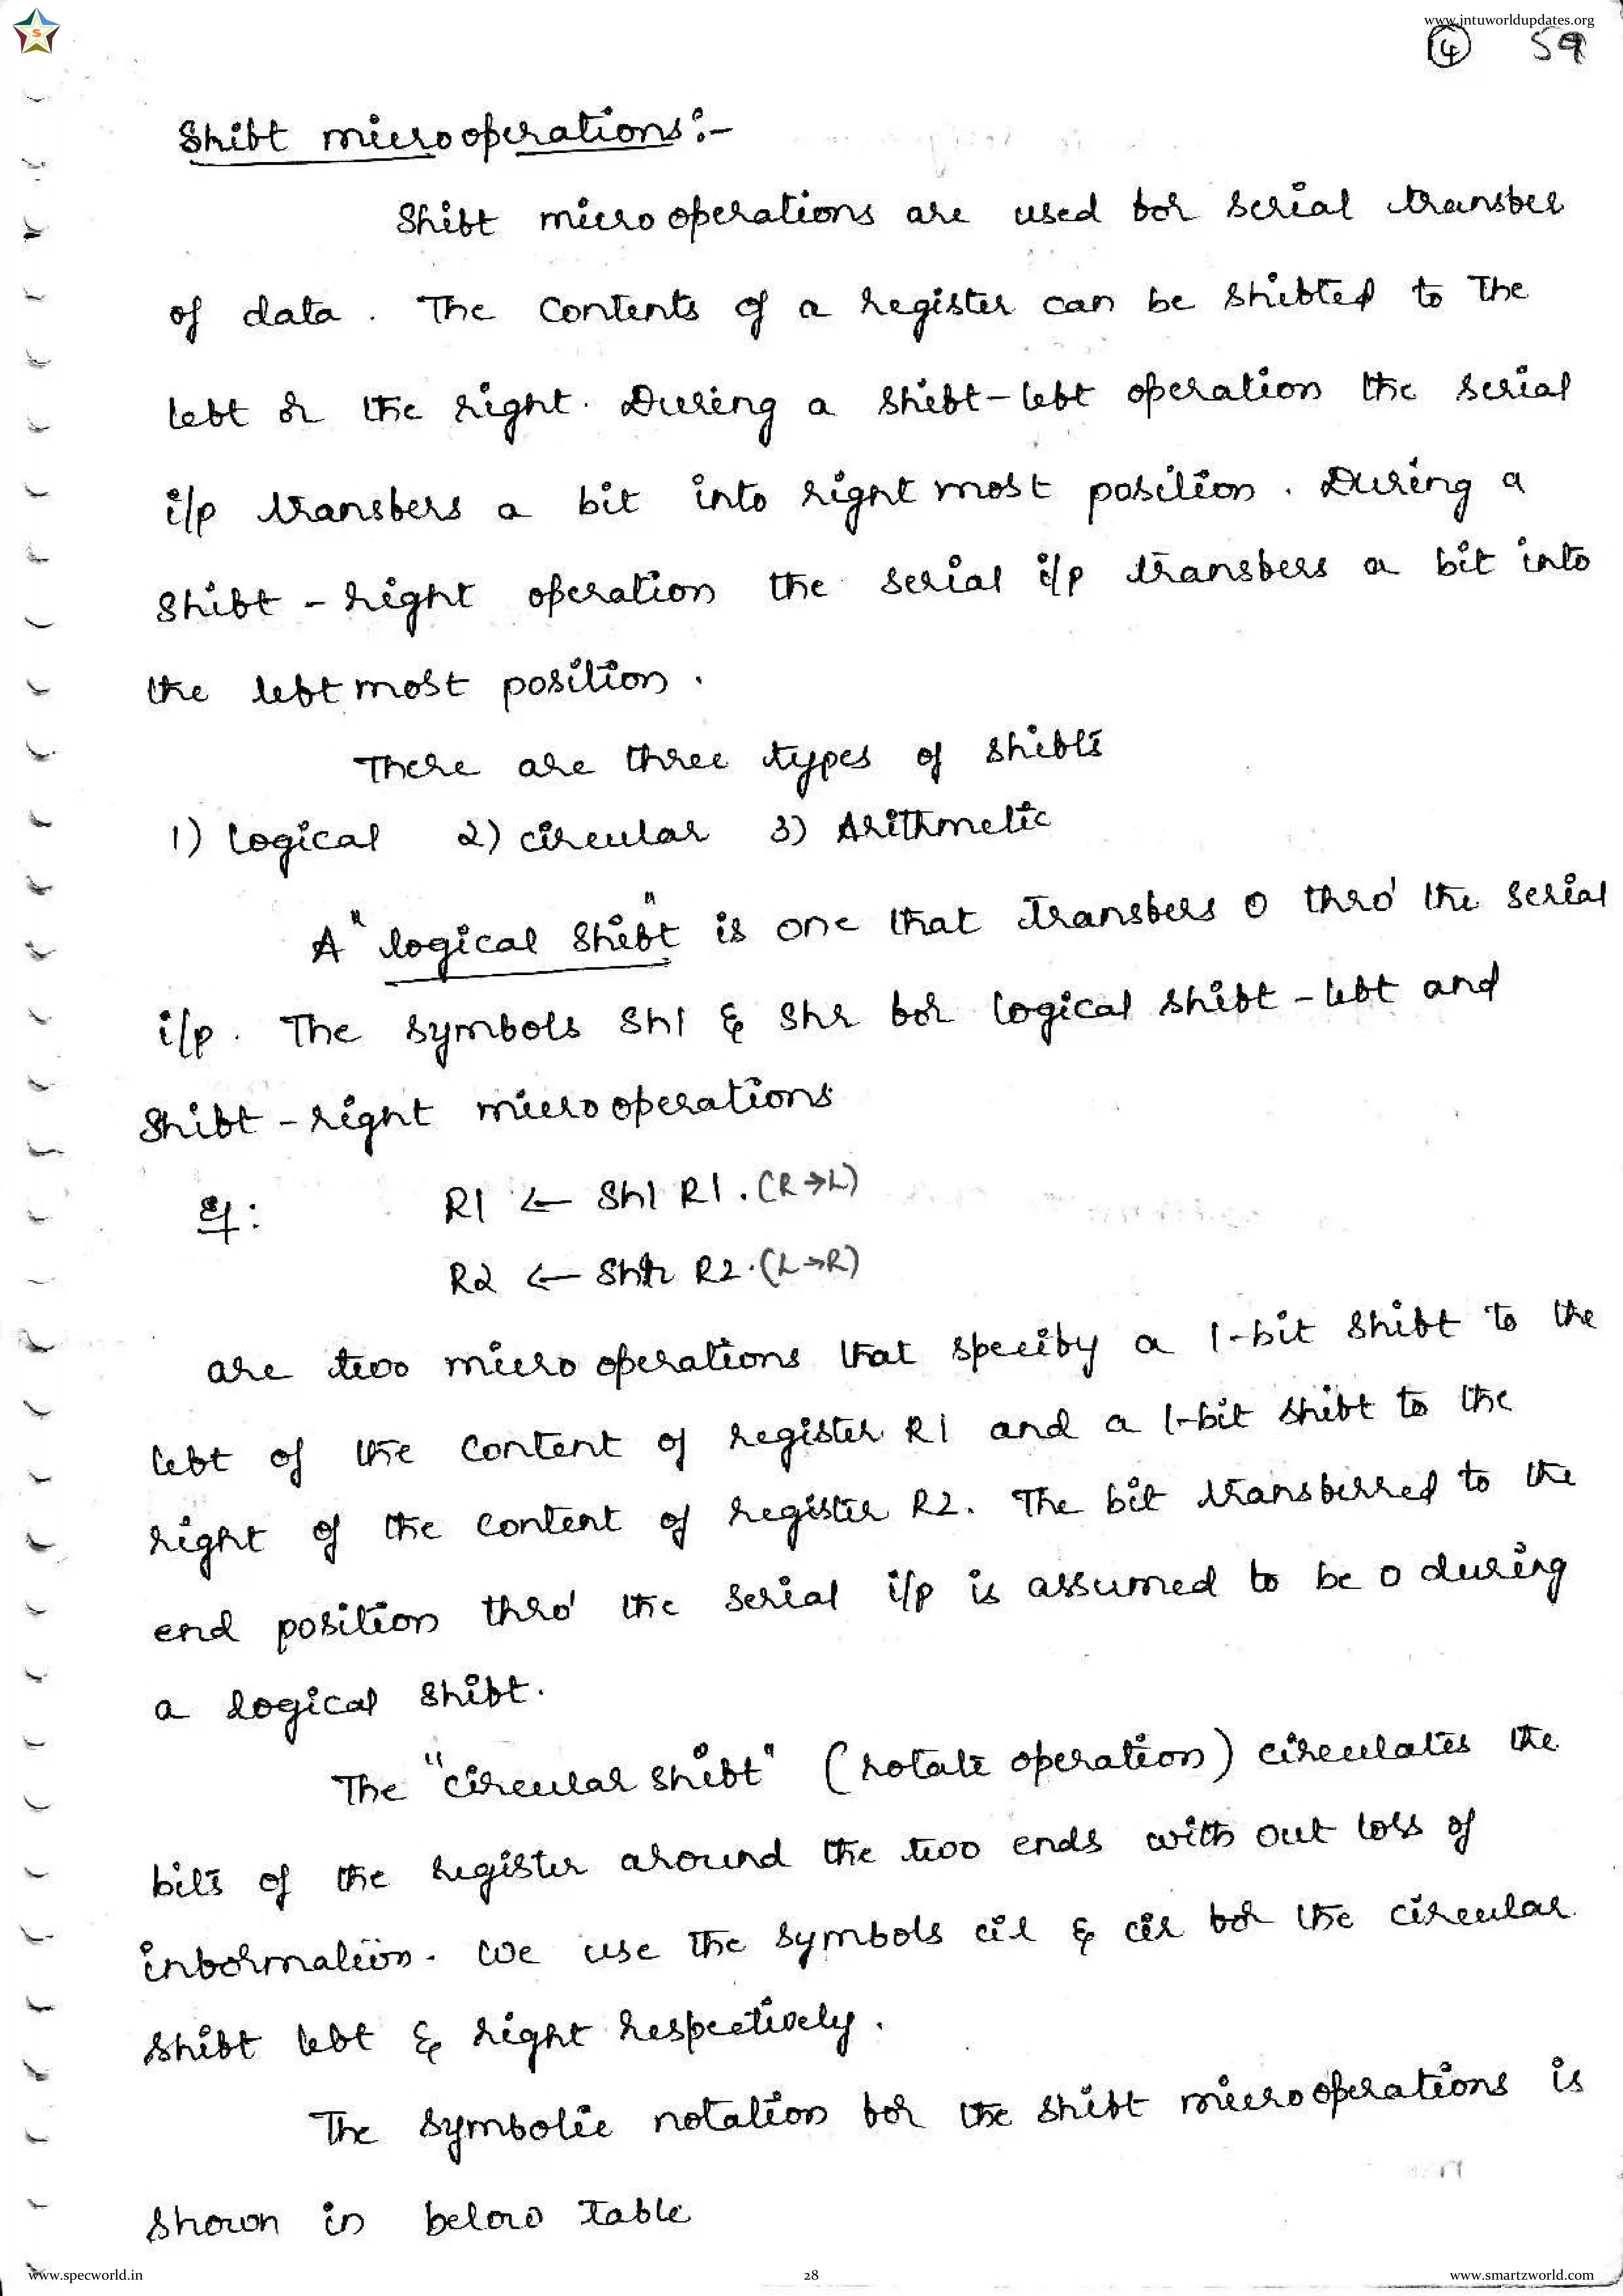 S
www.jntuworldupdates.org
14 59
Shift microoperations:-
Shift micro operations are used for serial transfer
of data. The contents of a register can be shifted to The
left or the right. During a shift-left operation the serial
i/p transfers a bit into right most position. During a
shift-right operation the serial i/p transfers a bit into
the left most position.
There are three types of shifts
1) Logical 2) circular 3) Arithmetic
A "logical shift" is one that transfers 0 thro' the serial
i/p. The symbols Shl & Shr for logical shift-left and
Shift-right micro operations
eg:
R1 ← Shl R1. (R→L)
R2 ← Shr R2. (L→R)
are two micro operations that specify a 1-bit shift to the
left of the content of register R1 and a 1-bit shift to the
right of the content of register R2. The bit transferred to the
end position thro' the serial i/p is assumed to be 0 during
a logical shift.
The "circular shift" (rotate operation) circulates the
bits of the register around the two ends with out loss of
information. We use the symbols cil & cir for the circular
shift left & right respectively.
The symbolic notation for the shift micro operations is
shown in below table
www.specworld.in
28
www.smartzworld.com